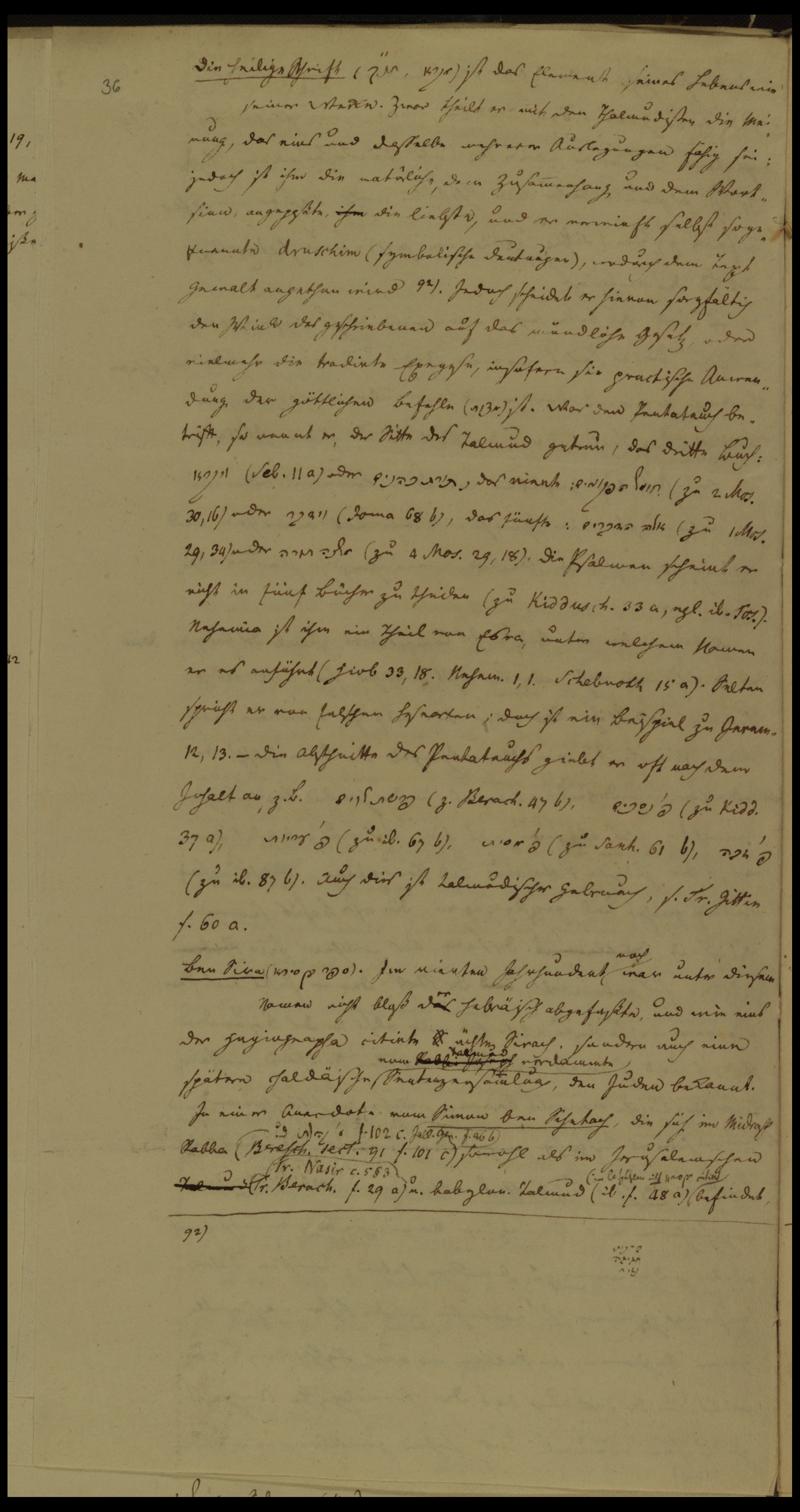 36
Die heilige Schrift (מקרא, תנ״ך) ist das Element seines Lebens wie
seiner Werke. Zwar theilt er mit den Thalmudisten die Mei-
nung, das eins und dasselbe mehrerer Auslegungen fähig sei;
jedoch ist ihm die natürliche, dem Zusammenhang und dem Wort-
sinn, angepaßte, ihm die liebste, und er verwirft selbst soge-
nannte Druschim (symbolische Deutungen), wodurch dem Text
Gewalt angethan wird 92). Jedoch scheidet er hievon sorgfältig
den Wink des geschriebenen auf das mündliche Gesetz, oder
vielmehr die tradirte Exegese, insofern sie practische Anwen-
dung der göttlichen Befehle ist. Was den Pentateuch be-
trifft, so nennt er, der Sitte des Talmud getreu, das dritte Buch:
ויקרא (Seb. 11 a) oder תורת כהנים, das vierte: חומש הפקודים (zu 2 Mos.
30,16) oder וידבר (Joma 68 b), das fünfte: אלה הדברים (zu 1 Mos.
29, 34) oder משנה תורה (zu 4 Mos. 29, 18). Die Psalmen scheint er
nicht in fünf Bücher zu theilen (zu Kiddusch. 33 a, vgl. ib. Tos.).
Nehemia ist ihm ein Theil von Esra, unter welchem Namen
er es anführt (Hiob 33, 18. Nehem. 1, 1. Schebuoth 15 a). Selten
spricht er von falschen Lesearten; doch ist ein Beispiel zu Jerem.
12, 13. – Die Abschnitte des Pentateuchs giebt er oft nach dem
Inhalt an, z.B. (z. Berach. 47 b), (zu Kidd.
37 a), פ׳ עריות (zu ib. 67 b), (zu Sanh. 61 b),
(zu ib. 87 b). Auch dies ist talmudischer Gebrauch, s. Tr. Gittin
f. 60 a.
Ben Sira (ספר בן סירא). Im vierten Jahrhundert war noch unter diesem
Namen nicht bloß der hebräisch abgefaßte, und wie eins
der Hagiographa citirte ächte Sirach, sondern auch eine
vom Talmud verdammte
spätere chaldäische Sentenzensammlung, den Juden bekannt.
In einer Anecdote vom Simon ben Schetach, die sich im Midrasch
f. 102 c.
Rabba (Beresch. sect. 91 f. 101 c) sowohl als im Jerusalemschen
Tr. Nasir c. 5 §3
Talmud (Tr. Berach. f. 29 a) u. babylon. Talmud (ib. f. 48 a) befindet,
92)